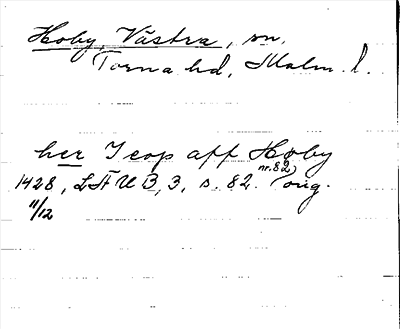 Hoby, Västra, sn.
Torna hd, Malm. l.
her Jeop aff Hoby
1428, LÄUB, 3, s. 82. (nr. 82) orig.
11/12